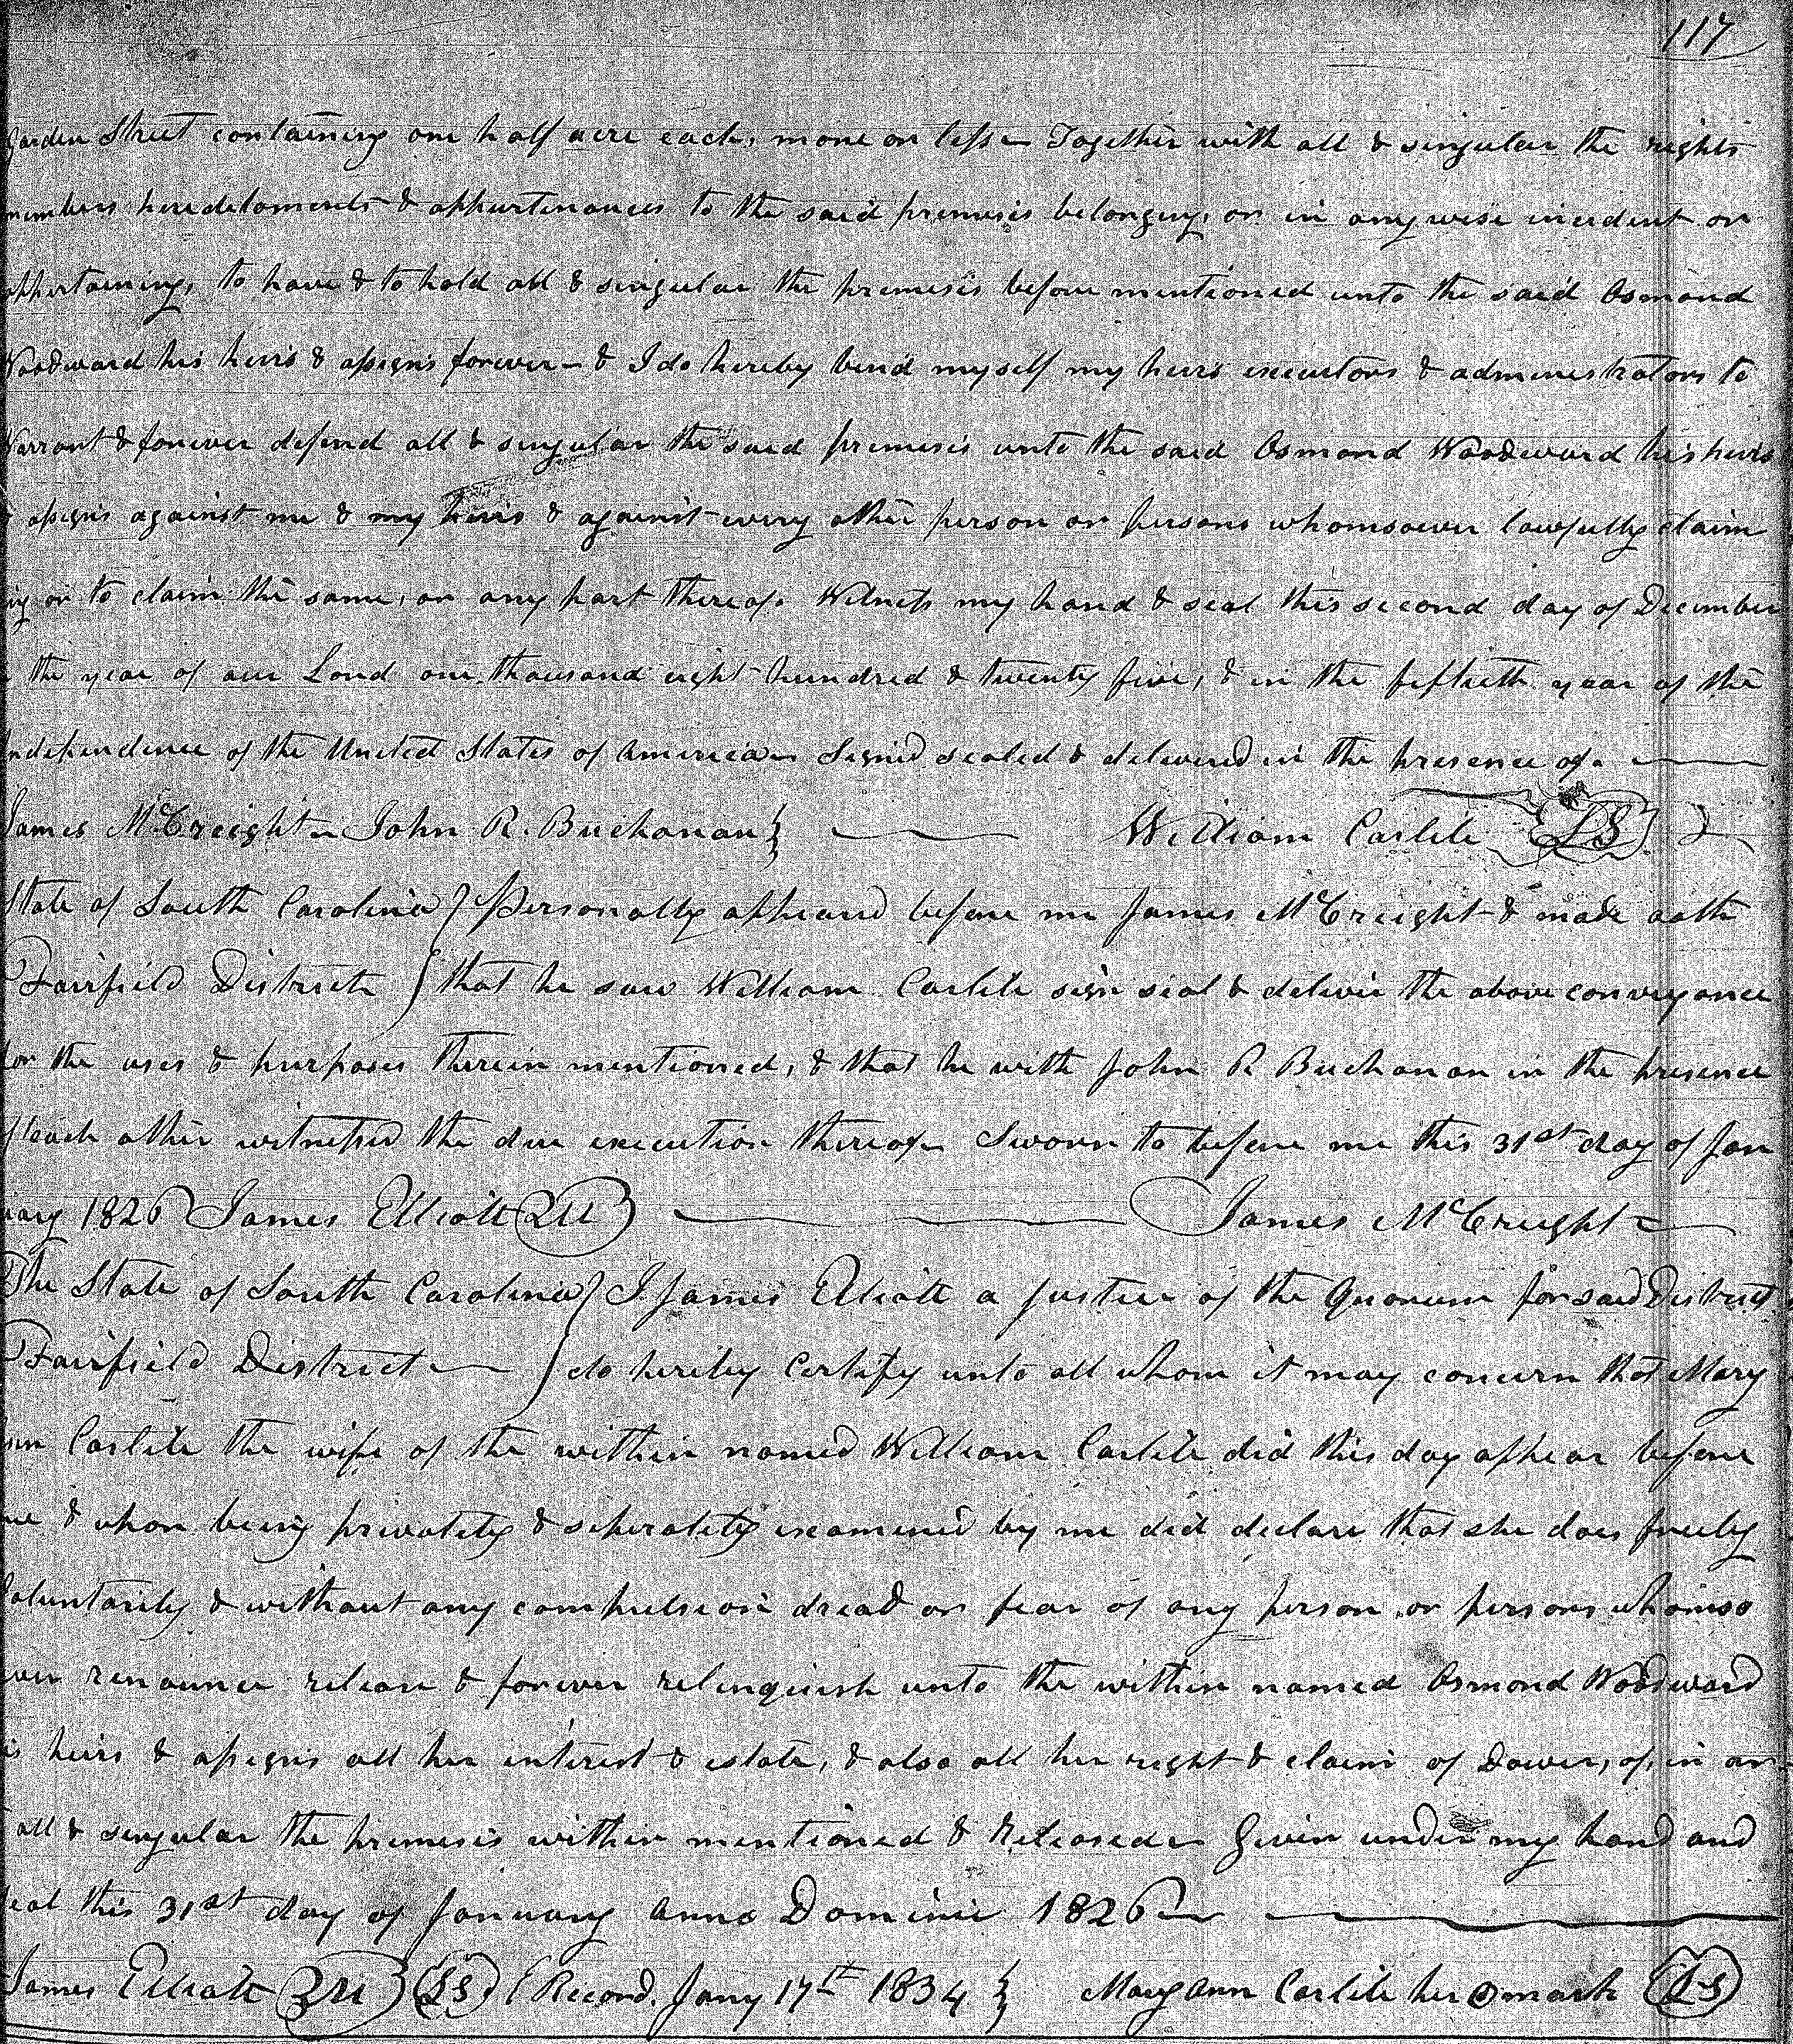 117
Garden Street containing one half acre each, more or less Together with all & singular the rights
members heredetaments & appurtenances to the said premises belonging, or in any wise incident or
appertaining, to have & to hold all & singular the premises before mentioned unto the said Osmond
Woodward his heirs & assigns forever - & I do hereby bind myself my heirs executors & administrators to
Warrant & forever defend all & singular the said premises unto the said Osmond Woodward his heirs
& assigns against me & my heirs & against every other person or persons whomsoever lawfully claim
ing or to claim the same, or any part thereof. Witness my hand & seal this second day of December
the year of our Lord one thousand eight hundred & twenty five, & in the fiftieth year of the
Independence of the United States of America Signed sealed & delivered in the presence of.
James McCreight John R. Buchanan } William Carlile LS
State of South Carolina } Personally appeared before me James McCreight & made oath
Fairfield District } that he saw William Carlile sign seal & deliver the above conveyance
for the uses & purposes therein mentioned, & that he with John R Buchanan in the presence
of each other witnessed the due execution thereof Sworn to before me this 31st day of Jan
uary 1826 James Elliott QU James McCreight
The State of South Carolina } I James Elliott a Justice of the Quorum for said District
Fairfield District } do hereby Certify unto all whom it may concern that Mary
Ann Carlile the wife of the within named William Carlile did this day appear before
me & upon being privately & seperately examined by me did declare that she does freely
Voluntarily & without any compulsion dread or fear of any person or persons whomso
ever renounce release & forever relinquish unto the within named Osmond Woodward
his heirs & assigns all her interest & estate, & also all her right & claim of Dower, of, in or
all & singular the premises within mentioned & Released Given under my hand and
seal this 31st day of January Anno Domini 1826
James Elliott QU LS Record. Jany 17th 1834 } Mary Ann Carlile her O mark LS